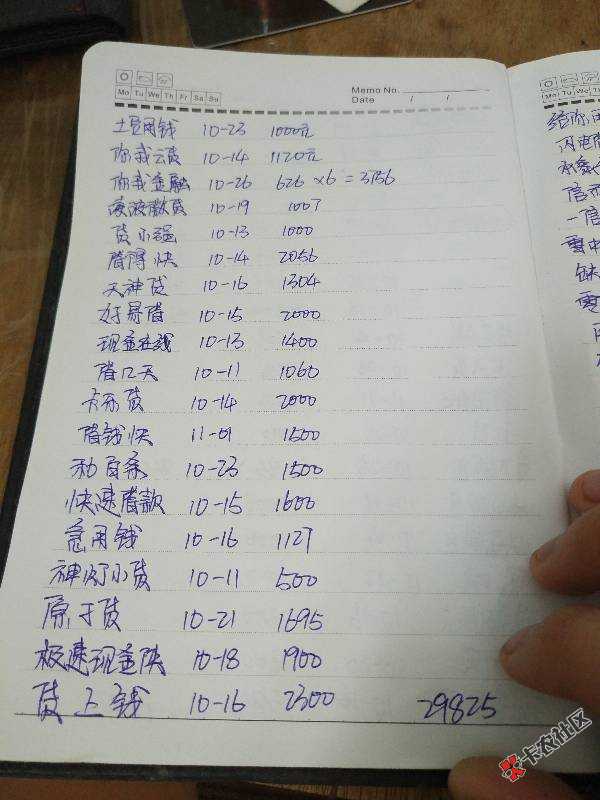 Mo Tu We Th Fr Sa Su
Memo No.
Date / /
土豆用钱 10-23 1000元
你我云贷 10-14 1120元
你我金融 10-26 626×6=3756
滚滚散贷 10-19 1007
贷小强 10-13 1000
借得快 10-14 2056
天神贷 10-16 1304
好易借 10-15 2000
现金在线 10-13 1400
借几天 10-11 1060
卡乐贷 10-14 2000
借钱快 11-01 1500
秒白条 10-23 1500
快速借款 10-15 1600
急用钱 10-16 1127
神灯小贷 10-11 500
原子贷 10-21 1695
极速现金侠 10-18 1900
贷上钱 10-16 2300 29825
Mo Tu We
给你
一信
卡农社区